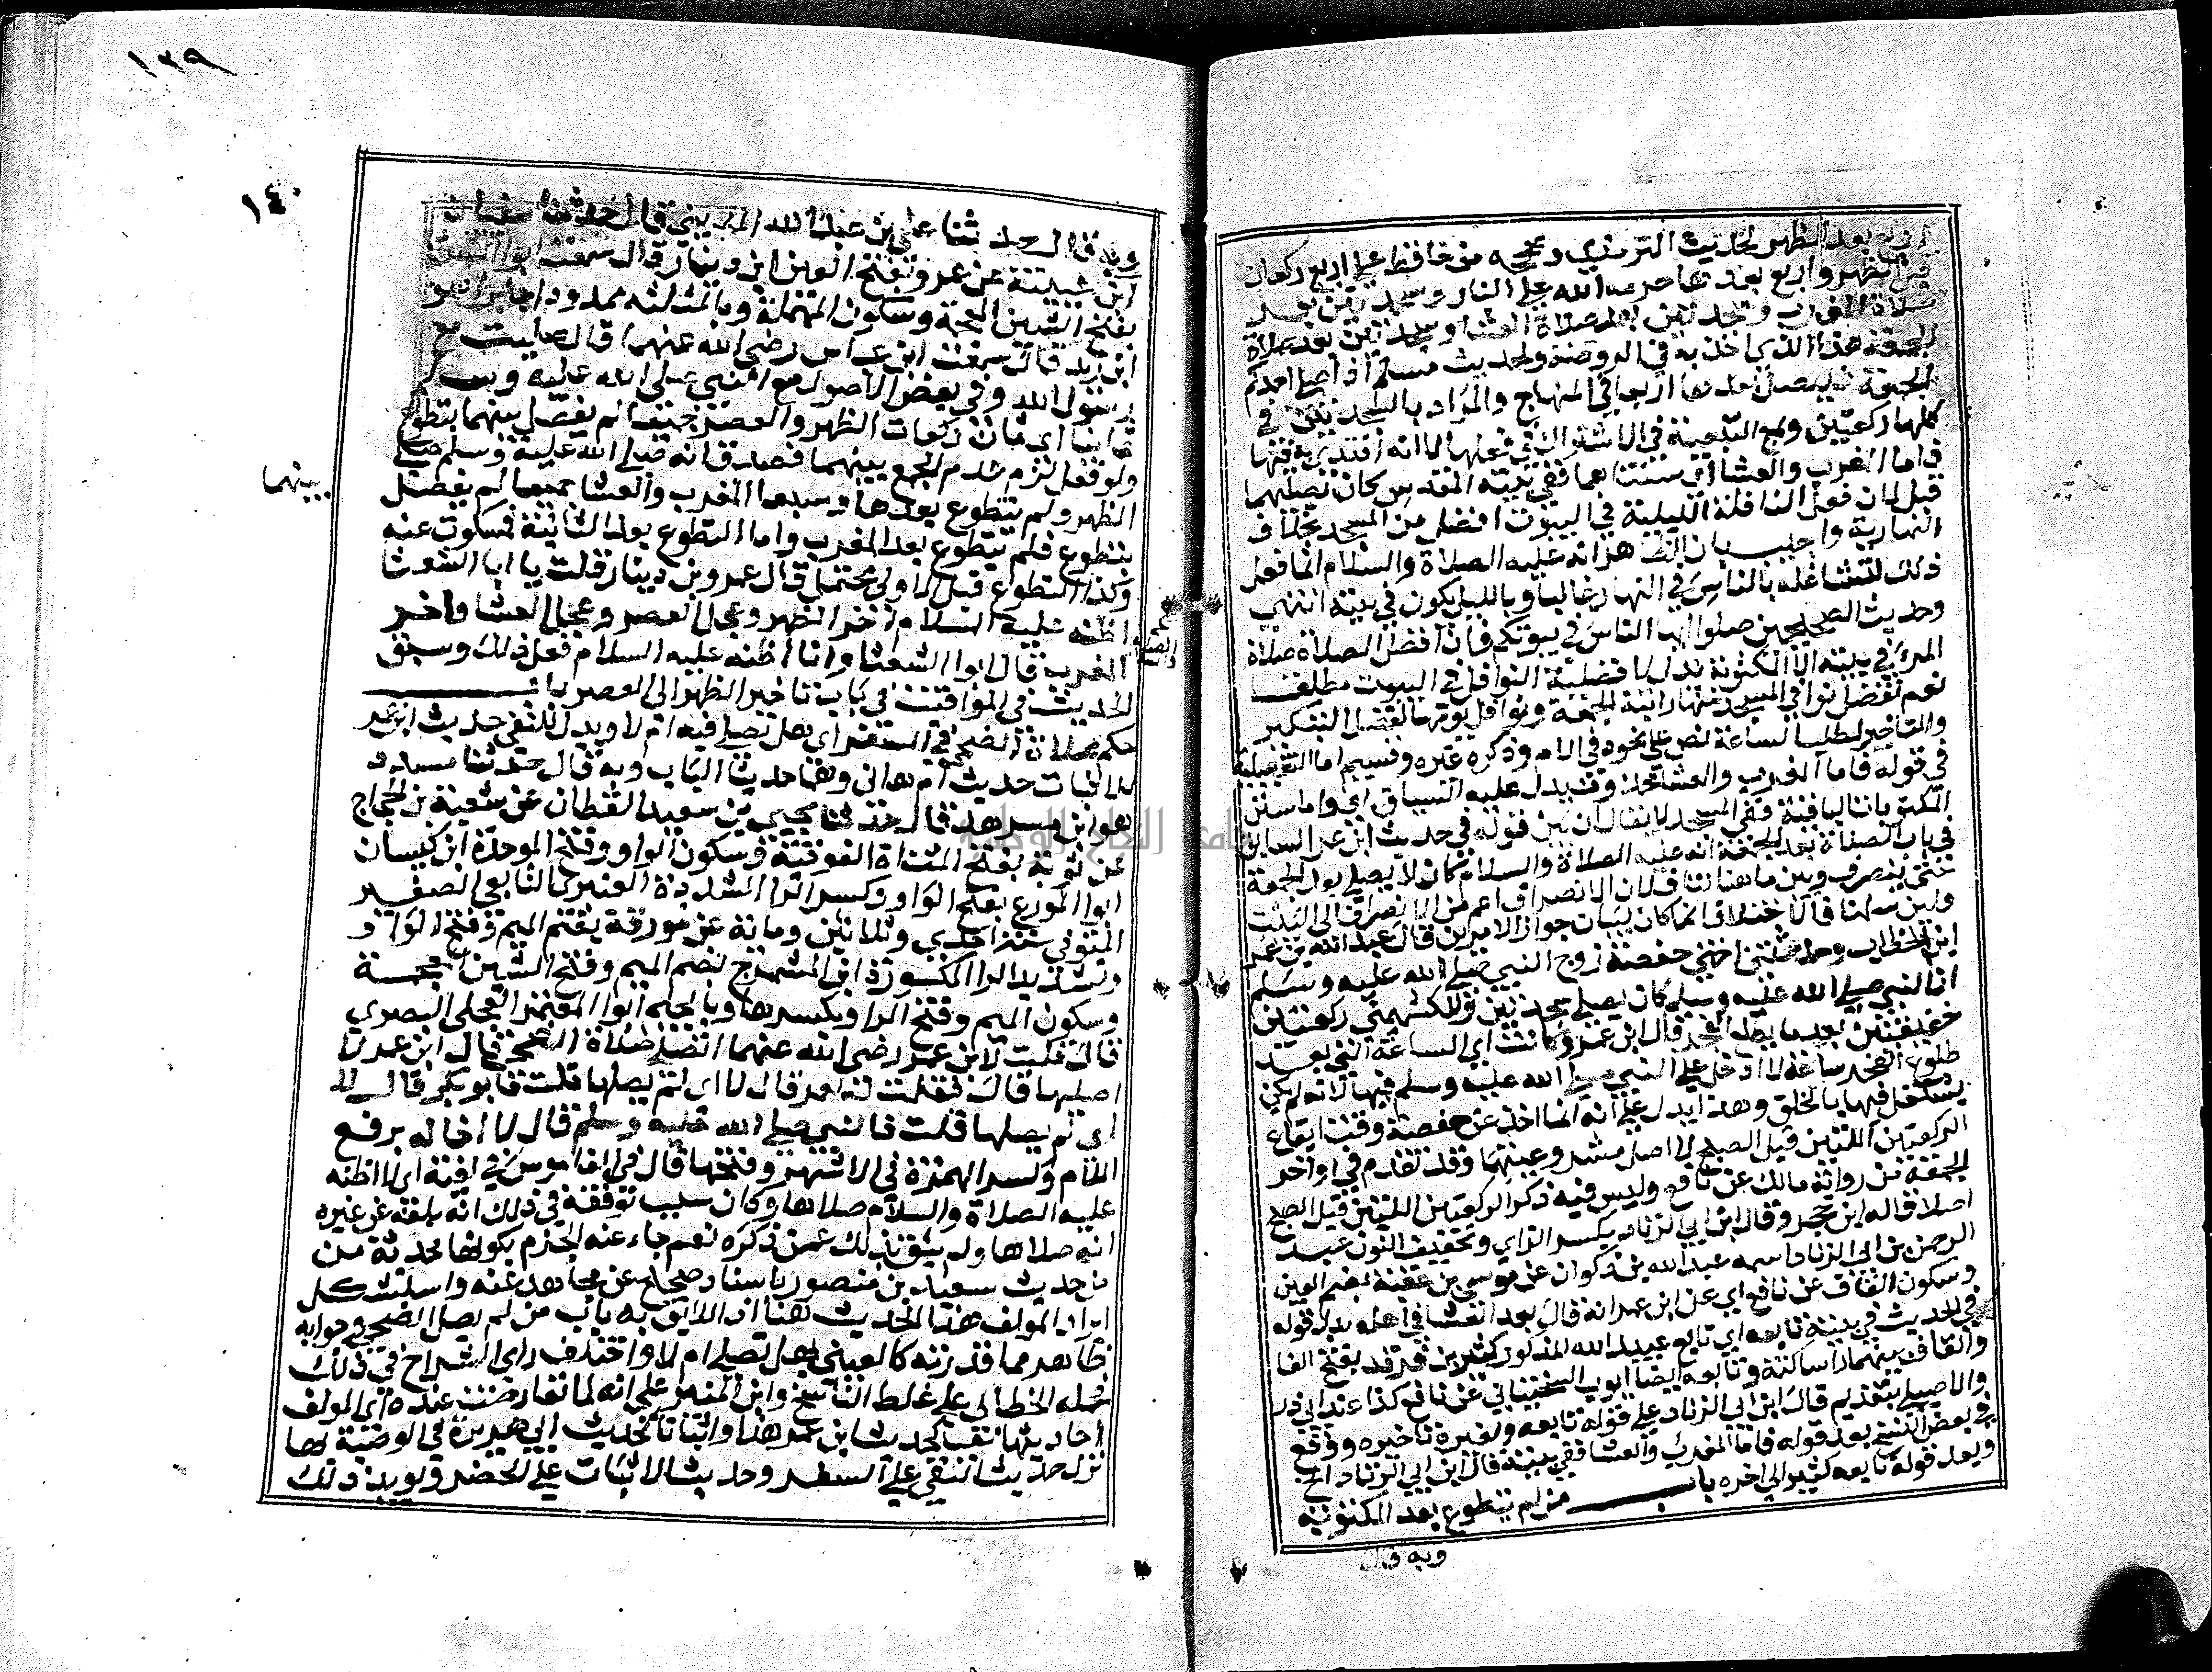 بعد الظهر لحديث الترمذي وصححه من حافظ على اربع ركعات
قبل الظهر واربع بعدها حرمه الله على النار وسجدتين بعد
صلاة المغرب وسجدتين بعد صلاة العشا وسجدتين بعد صلاة
الجمعة هذا الذي اخذ به في الروضة ولحديث مسلم اذا صلى احدكم
الجمعة فليصل بعدها اربعا في المنهاج والمراد بالسجدتين في
كلها ركعتين ومع التبعية في الاشتراك في فعلها لا انه اقتدى به فيها
فاما المغرب والعشا اي سنتاهما ففي بيته المقدس كان يصليهما
قيل لان فعل النافلة الليلية في البيوت افضل من المسجد بخلاف
النهارية واجيب بان الظاهر انه عليه الصلاة والسلام انما فعل
ذلك لتشاغله بالناس في النهار غالبا وبالليل يكون في بيته انتهى
وحديث الصحيحين صلوا ايها الناس في بيوتكم فان افضل الصلاة صلاة
المرء في بيته الا المكتوبة يدل لافضلية النوافل في البيوت مطلقا
نعم تفضل نوافل في المسجد منها راتبة الجمعة ونوافل يومها لفضل التبكير
والتاخير لطلب الساعة نص على نحوه في الام وذكره غيره وقسيم اما التفصيلية
في قوله فاما المغرب والعشا محذوف يدل عليه السياق اي واما سنن
المكتوبات الباقية ففي المسجد لا يقال ان بين قوله في حديث ابن عمر السابق
في باب الصلاة بعد الجمعة انه عليه الصلاة والسلام كان لا يصلي بعد الجمعة
حتى ينصرف وبين ما هنا تناف لان الانصراف اعم من الانصراف الى البيت
ولين سلمنا فالاختلاف انما كان لبيان جواز الامرين قال عبد الله بن عمر
ابن الخطاب وحدثتني اختي حفصة زوج النبي صلى الله عليه وسلم
ان النبي صلى الله عليه وسلم كان يصلي سجدتين وللكشميهني ركعتين
خفيفتين بعد ما يطلع الفجر قال ابن عمر وكانت اي الساعة التي بعد
طلوع الفجر ساعة لا ادخل على النبي صلى الله عليه وسلم فيها لانه لم يكن
يشتغل فيها بالخلق وهذا يدل على انه انما اخذ عن حفصة وقت ايقاع
الركعتين اللتين قبل الصبح لا اصل مشروعيتهما وقد تقدم في اواخر
الجمعة من رواية مالك عن نافع وليس فيه ذكر الركعتين اللتين قبل الصبح
اصلا قاله ابن حجر وقال ابن ابي الزناد بكسر الزاي وتخفيف النون عبد
الرحمن بن ابي الزناد اسمه عبد الله بن ذكوان عن موسى بن عقبة بضم العين
وسكون القاف عن نافع اي عن ابن عمر انه قال بعد العشا في اهله بدل قوله
في الحديث في بيته تابعه اي تابع عبيد الله المذكور كثير بن فرقد بفتح الفا
والقاف بينهما را ساكنة وتابعه ايضا ايوب السختياني عن نافع كذا عند ابي ذر
والاصيلي بتقديم قال ابن ابي الزناد على قوله تابعه ولغيره تاخيره ووقع
في بعض النسخ بعد قوله فاما المغرب والعشا ففي بيته قال ابن ابي الزناد الخ
وبعد قوله تابعه كثير الى اخره باب من لم يتطوع بعد المكتوبة
وبه قال
١٣٩
١٤٠
وبه قال حدثنا علي بن عبد الله المديني قال حدثنا سفيان
ابن عيينة عن عمرو بفتح العين ابن دينار قال سمعت ابا الشعثا
بفتح الشين المعجمة وسكون المهملة وبالمثلثة ممدودا جابرا هو
ابن زيد قال سمعت ابن عباس رضي الله عنهما قال صليت مع
رسول الله وفي بعض الاصول مع النبي صلى الله عليه وسلم
ثمانيا اي ثمان ركعات الظهر والعصر جميعا لم يفصل بينهما بتطوع
ولو فعل لزم عدم الجمع بينهما فصدق انه صلى الله عليه وسلم صلى
الظهر ولم يتطوع بعدها وسبعا المغرب والعشا جميعا لم يفصل
بينهما
بتطوع فلم يتطوع بعد المغرب واما التطوع بعد الثانية فمسكوت عنه
وكذا التطوع قبل الاولى محتمل قال عمرو بن دينار قلت يا ابا الشعثا
اظنه عليه السلام اخر الظهر وعجل العصر وعجل العشا واخر
المغرب قال ابو الشعثا وانا اظنه عليه السلام فعل ذلك وسبق
الحديث في المواقيت في باب تاخير الظهر الى العصر باب
حكم صلاة الضحى في السفر اي هل تصلى فيه ام لا ويدل للنفي حديث ابن عمر
للاثبات حديث ام هانئ وهما حديثا الباب وبه قال حدثنا مسدد
هو ابن مسرهد قال حدثنا يحيى بن سعيد القطان عن شعبة بن الحجاج
عن توبة بفتح المثناة الفوقية وسكون الواو وفتح الموحدة ابن كيسان
ابو المورع بفتح الواو وكسر الرا المشددة العنبري التابعي الصغير
المتوفى سنة احدى وثلاثين ومائة عن مورق بضم الميم وفتح الواو
وتشديد الرا المكسورة ابن المشمرج بضم الميم وفتح الشين المعجمة
وسكون الميم وفتح الرا وبكسرها وبالجيم ابو المعتمر العجلي البصري
قال قلت لابن عمر رضي الله عنهما اتصلي صلاة الضحى قال ابن عمر لا
اصليها قال فقلت له فعمر قال لا اي لم يصلها قلت فابو بكر قال لا
اي لم يصلها قلت فالنبي صلى الله عليه وسلم قال لا اخاله برفع
اللام وكسر الهمزة في الاشهر وفتحها قال في القاموس في لغية اي لا اظنه
عليه الصلاة والسلام صلاها وكان سبب توقفه في ذلك انه بلغه عن غيره
انه صلاها ولم يثق بذلك عمن ذكره نعم جاء عنه الجزم بكونها محدثة من
من حديث سعيد بن منصور باسناد صحيح عن مجاهد عنه واستشكل
ايراد المولف هذا الحديث هنا اذ اللائق به باب من لم يصل الضحى وجوابه
ظاهر مما قدرته كالعيني بهل تصلى ام لا واختلف راي الشراح في ذلك
فحمله الخطابي على غلط الناسخ وابن المنير على انه لما تعارضت عنده اي المولف
احاديثها نفيا كحديث ابن عمر هذا واثباتا كحديث ابي هريرة في الوصية بها
نزل حديث النفي على السفر وحديث الاثبات على الحضر ويويد ذلك